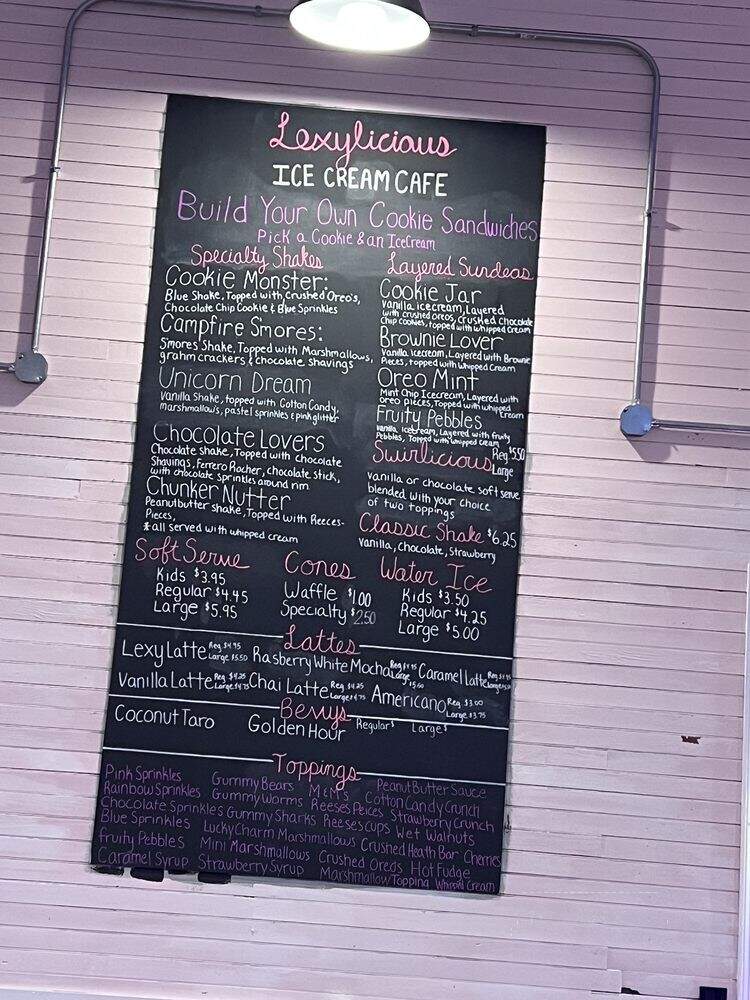 Lexylicious
ICE CREAM CAFE
Build Your Own Cookie Sandwiches
Pick a Cookie & an IceCream
Specialty Shakes
Cookie Monster:
Blue Shake, Topped with Crushed Oreo's,
Chocolate Chip Cookie & Blue Sprinkles
Campfire Smores:
Smores Shake, Topped with Marshmallows,
grahm crackers & chocolate shavings
Unicorn Dream
Vanilla Shake, topped with Cotton Candy,
marshmallows, pastel sprinkles & pink glitter
Chocolate Lovers
Chocolate shake, Topped with Chocolate
Shavings, Ferrero Rocher, chocolate stick,
with chocolate sprinkles around rim
Chunker Nutter
Peanutbutter shake, Topped with Reeces-
Pieces,
*all served with whipped cream
Layered Sundeas
Cookie Jar
Vanilla icecream, Layered
with crushed oreos, crushed chocolate
chip cookies, topped with whipped cream
Brownie Lover
Vanilla icecream, Layered with Brownie
Pieces, topped with whipped Cream
Oreo Mint
Mint Chip Icecream, Layered with
oreo pieces, Topped with whipped
Cream
Fruity Pebbles
Vanilla icecream, Layered with fruity
Pebbles, Topped with whipped cream
Swirlicious Reg $5.50
Large
Vanilla or chocolate soft serve
blended with your choice
of two toppings
Classic Shake $6.25
Vanilla, Chocolate, Strawberry
Soft Serve
Kids $3.95
Regular $4.45
Large $5.95
Cones
Waffle $1.00
Specialty $2.50
Water Ice
Kids $3.50
Regular $4.25
Large $5.00
Lattes
Lexy Latte Reg $4.95 Large $5.50 Rasberry White Mocha Large Caramel Latte
Vanilla Latte Reg $4.25 Large $4.75 Chai Latte Reg $4.25 Large $4.75 Americano Reg. $3.00 Large $3.75
Berrys
Coconut Taro Golden Hour Regular$ Large$
Toppings
Pink Sprinkles Gummy Bears M&M's Peanut Butter Sauce
Rainbow Sprinkles Gummy Worms Reeses Peices Cotton Candy Crunch
Chocolate Sprinkles Gummy Sharks Reeses cups Strawberry Crunch
Blue Sprinkles Lucky Charm Marshmallows Wet Walnuts
Fruity Pebbles Mini Marshmallows Crushed Heath Bar Cherries
Caramel Syrup Strawberry Syrup Crushed Oreos Hot Fudge
Marshmallow Topping Whipped Cream